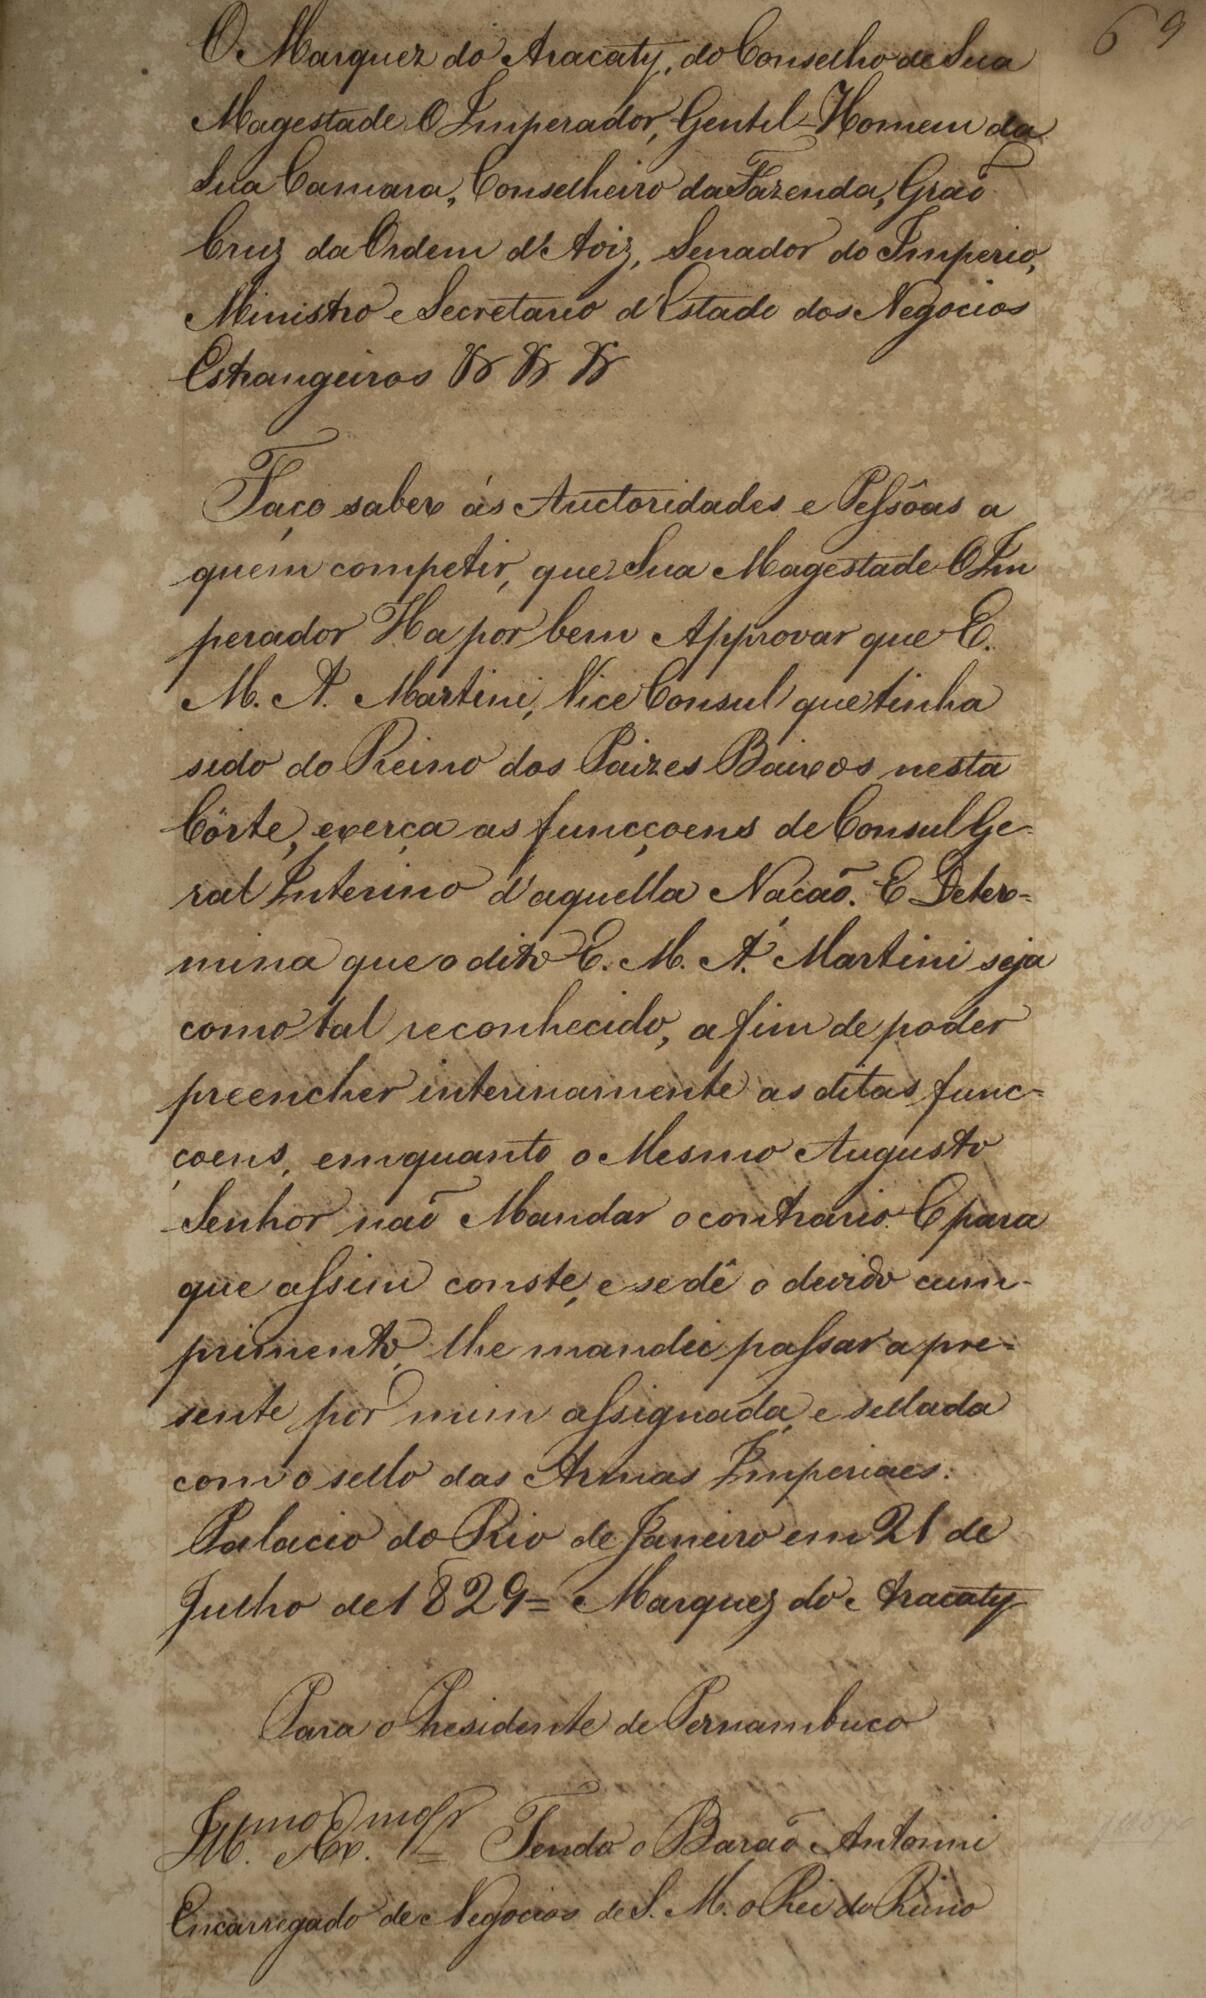 69
O Marquez do Aracaty, do Conselho de Sua
Magestade O Imperador, Gentil-Homem da
Sua Camara, Conselheiro da Fazenda, Graõ
Cruz da Ordem d'Aviz, Senador do Imperio,
Ministro e Secretario d'Estado dos Negocios
Estrangeiros &c &c &c
Faço saber ás Auctoridades e Pessôas a
quem competir, que Sua Magestade O Im
perador Ha por bem Approvar que E.
M. A. Martini, Vice Consul que tinha
sido do Reino dos Paizes Baixos nesta
Côrte, exerça as funcçoens de Consul Ge-
ral Interino d'aquella Naçaõ. E Deter=
mina que o dito E. M. A. Martini seja
como tal reconhecido, a fim de poder
preencher interinamente as ditas func=
çoens, emquanto o Mesmo Augusto
Senhor naõ Mandar o contrario. E para
que assim conste, e se dê o devido cum-
primento, lhe mandei passar a pre=
sente por mim assignada, e sellada
com o sello das Armas Imperiaes.
Palacio do Rio de Janeiro em 21 de
Julho de 1829= Marquez do Aracaty
Para o Presidente de Pernambuco
Illmo. Exmo. Sr = Tendo o Baraõ Antonini
Encarregado de Negocios de S. M. o Rei do Reino